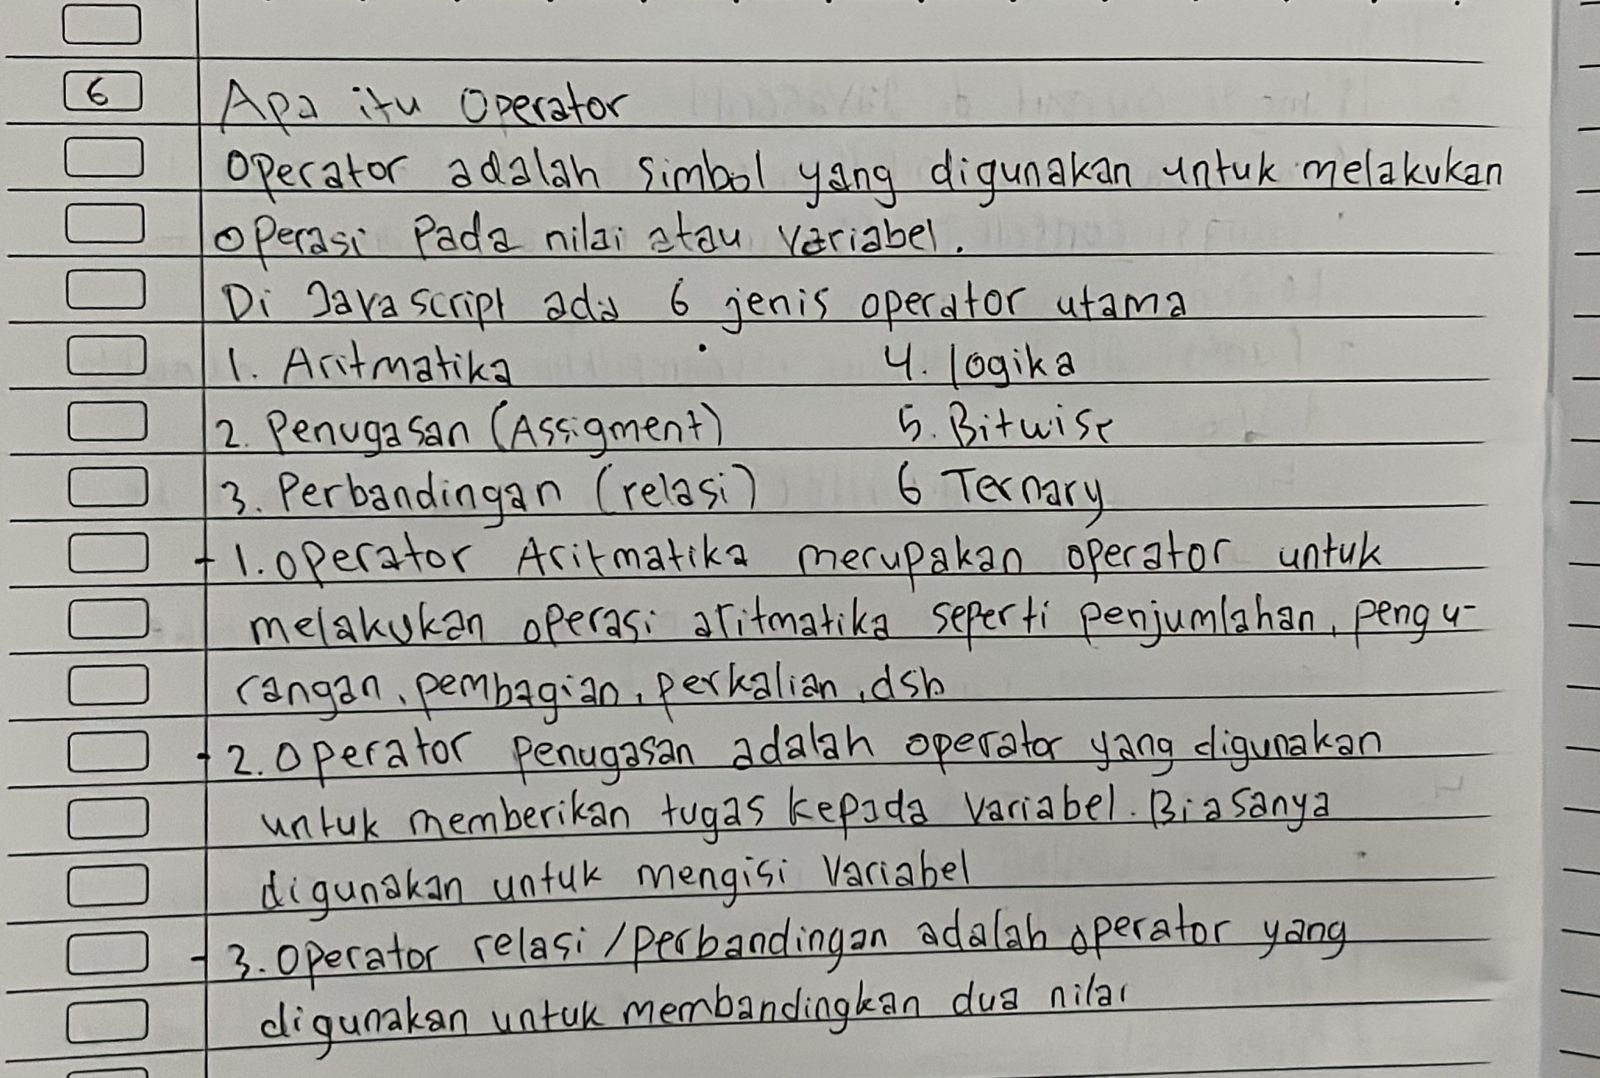 6 Apa itu Operator
Operator adalah simbol yang digunakan untuk melakukan
operasi Pada nilai atau variabel.
Di Javascript ada 6 jenis operator utama
1. Aritmatika 4. logika
2. Penugasan (Assigment) 5. Bitwise
3. Perbandingan (relasi) 6 Ternary
- 1. Operator Aritmatika merupakan operator untuk
melakukan operasi aritmatika seperti penjumlahan, pengu-
rangan, pembagian, perkalian, dsb
- 2. Operator penugasan adalah operator yang digunakan
untuk memberikan tugas kepada variabel. Biasanya
digunakan untuk mengisi Variabel
- 3. Operator relasi / perbandingan adalah operator yang
digunakan untuk membandingkan dua nilai